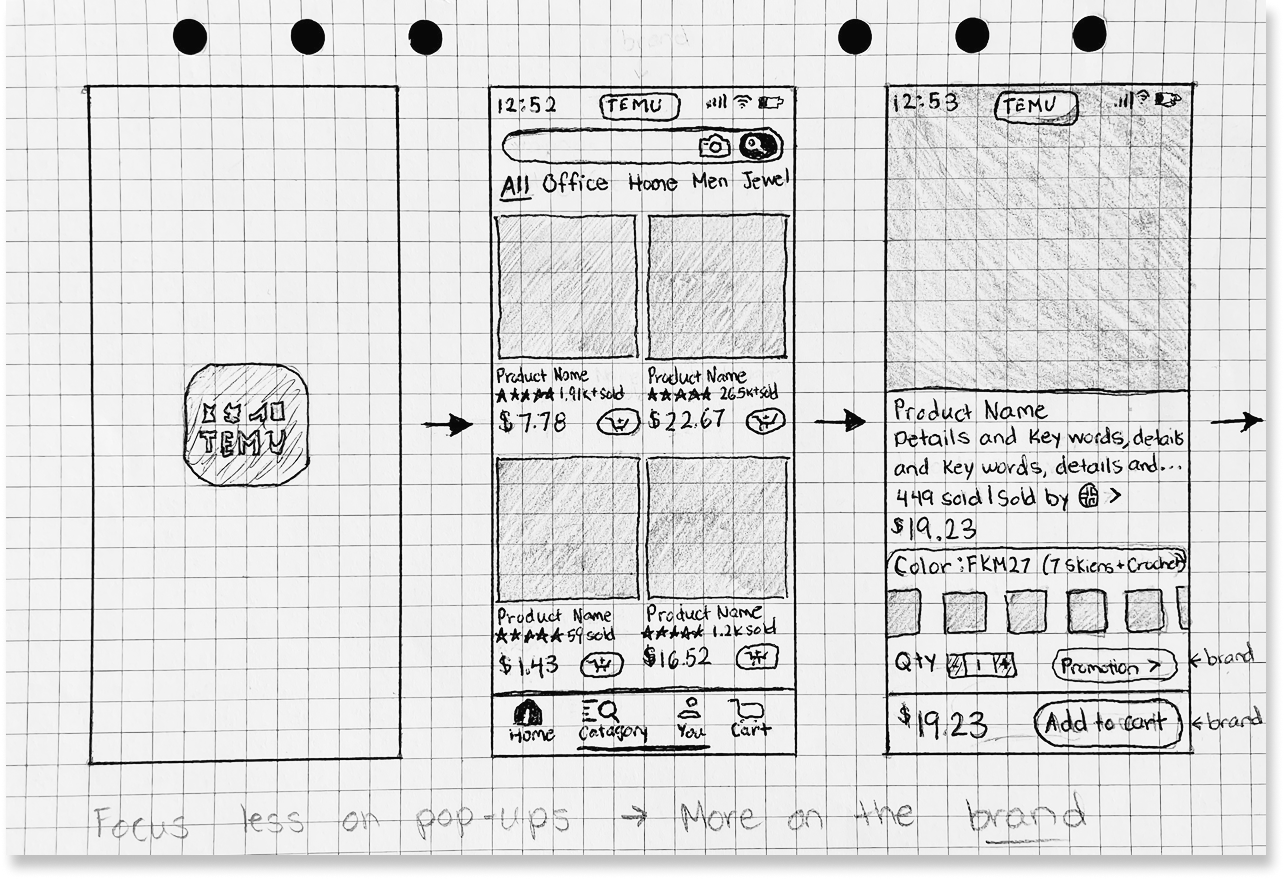 brand
TEMU
12:52 TEMU
All Office Home Men Jewel
Product Name
★★★★★ 1.91k+sold
$7.78
Product Name
★★★★★ 26.5k+sold
$22.67
Product Name
★★★★★ 59 sold
$1.43
Product Name
★★★★★ 1.2k sold
$16.52
Home Catagory You Cart
12:53 TEMU
Product Name
Details and Key words, details
and Key words, details and...
449 sold | Sold by >
$19.23
Color: FKM27 (7 Skiens + Crochet)
Qty 1 Promotion > ← brand
$19.23 Add to cart ← brand
Focus less on pop-ups → More on the brand